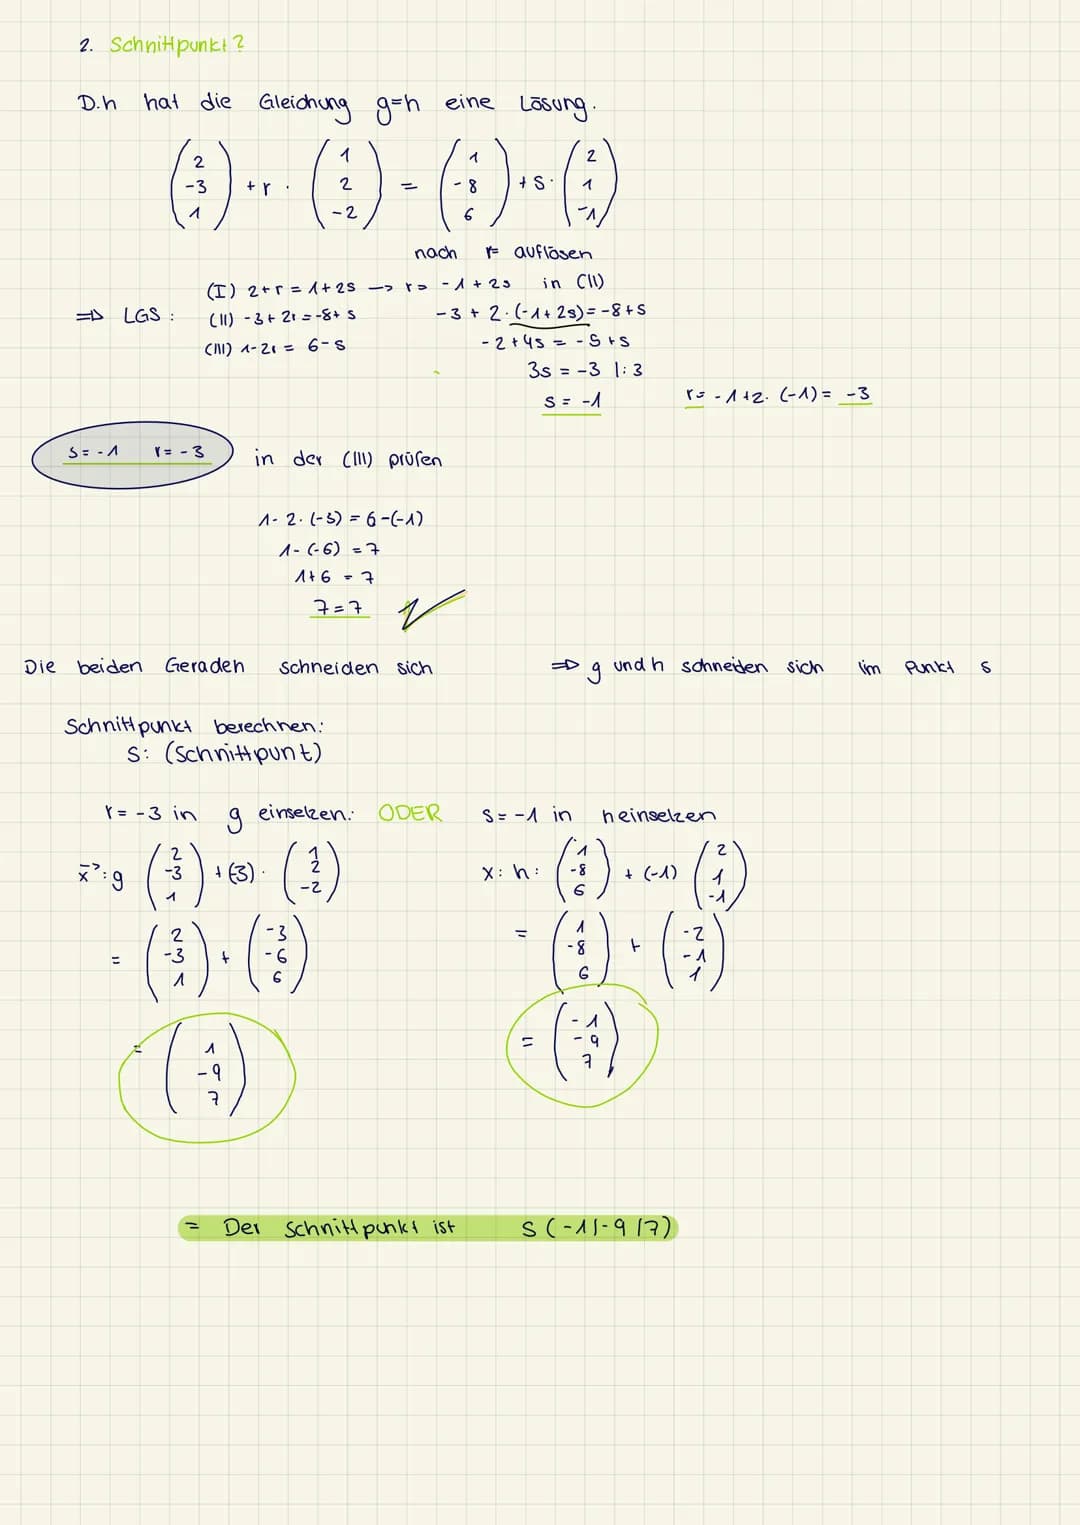 2. Schnittpunkt?
D.h hat die Gleichung g=h eine Lösung.
(2 -3 1) + r · (1 2 -2) = (1 -8 6) + s · (2 1 -1)
nach r= auflösen
(I) 2+r = 1+2s → r = -1 + 2s in (II)
⇒ LGS : (II) -3+2r = -8+s -3 + 2·(-1+2s) = -8+s
(III) 1-2r = 6-s -2+4s = -5+s
3s = -3 |:3
s = -1 r = -1+2·(-1) = -3
s = -1 r = -3 in der (III) prüfen
1-2·(-3) = 6-(-1)
1-(-6) = 7
1+6 = 7
7=7 ✓
Die beiden Geraden schneiden sich ⇒ g und h schneiden sich im Punkt S
Schnittpunkt berechnen:
S: (Schnittpunt)
r = -3 in g einsetzen: ODER s = -1 in h einsetzen
x⃗: g (2 -3 1) + (-3) · (1 2 -2) x: h: (1 -8 6) + (-1) (2 1 -1)
= (2 -3 1) + (-3 -6 6) = (1 -8 6) + (-2 -1 1)
= (1 -9 7) = (-1 -9 7)
= Der Schnittpunkt ist S (-1|-9|7)